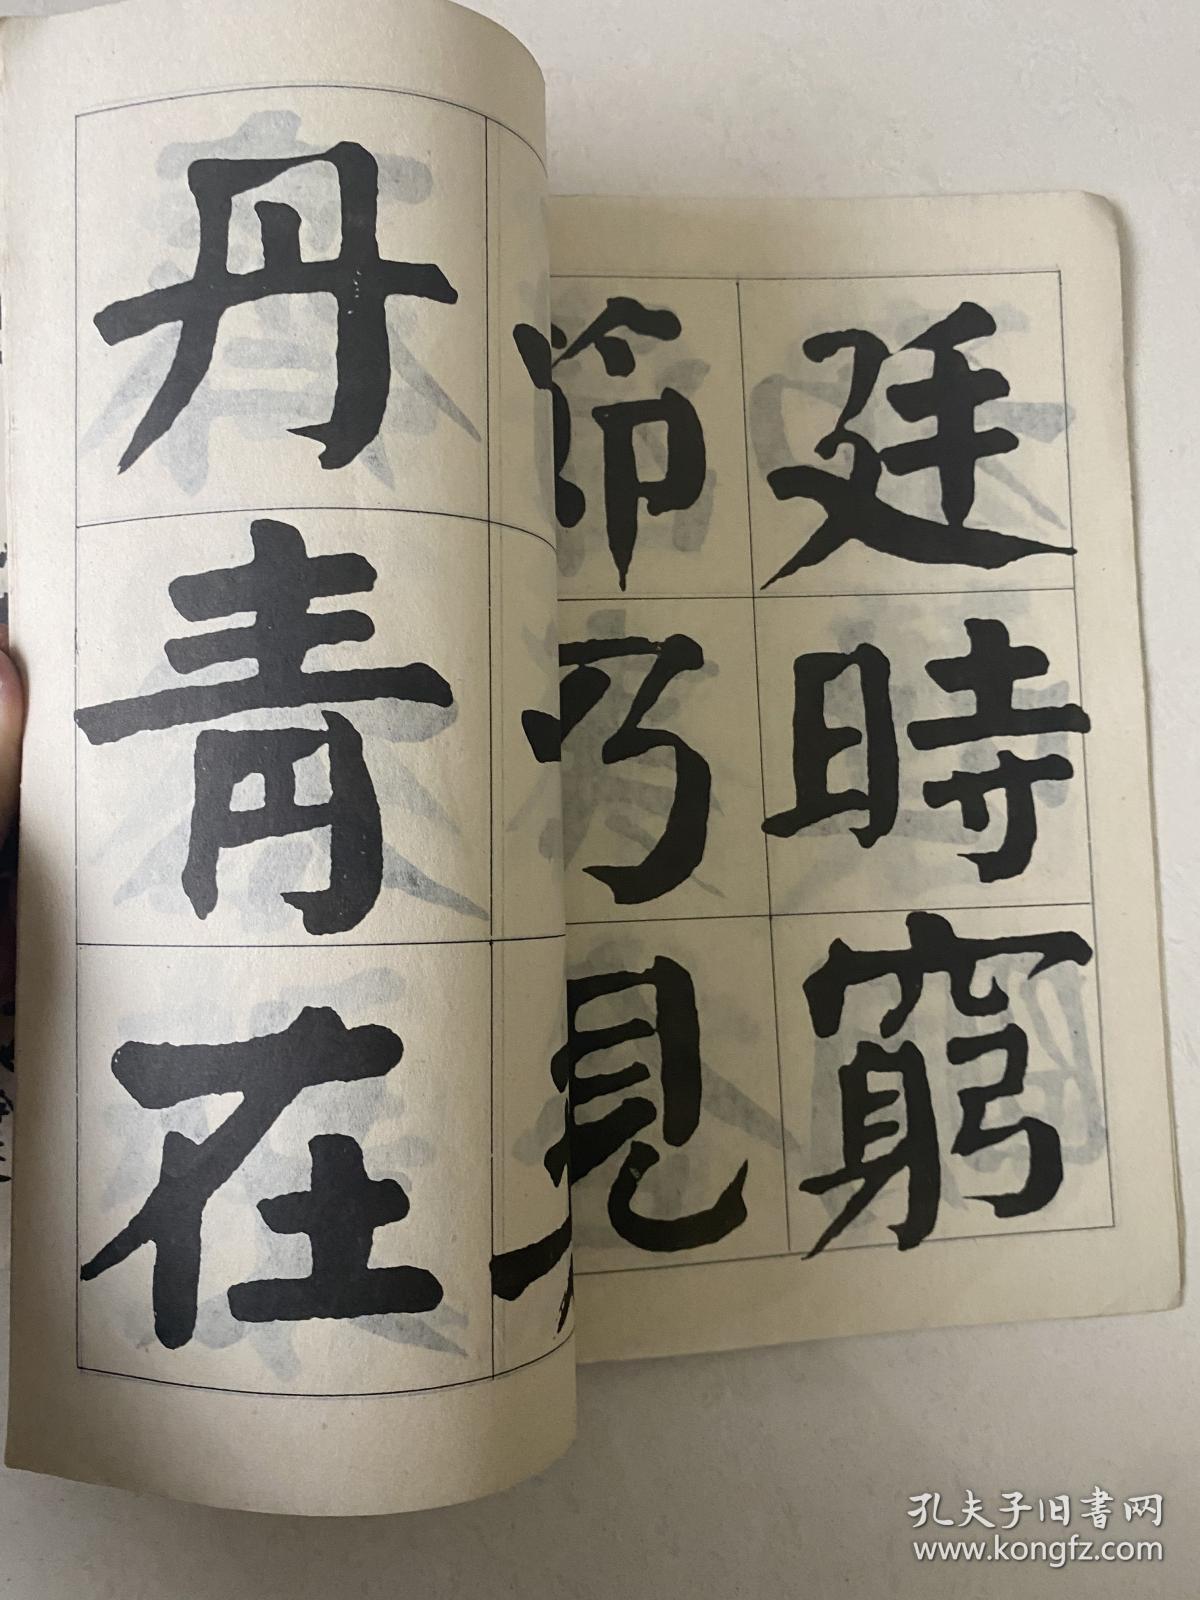 廷時窮
節乃見
丹青在
孔夫子旧書网
www.kongfz.com